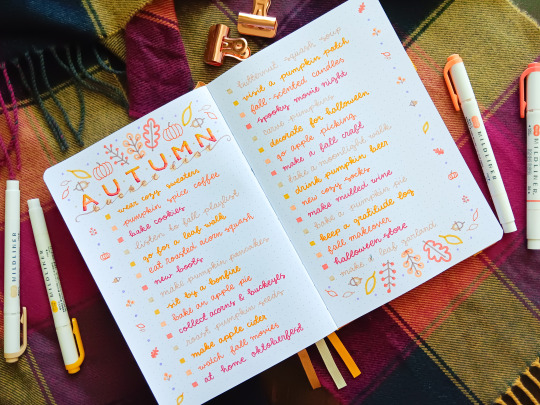 AUTUMN
bucket list
wear cozy sweaters
pumpkin spice coffee
bake cookies
listen to fall playlist
go for a leaf walk
eat roasted acorn squash
new boots
make pumpkin pancakes
sit by a bonfire
bake an apple pie
collect acorns & buckeyes
roast pumpkin seeds
make apple cider
watch fall movies
at home oktoberfest
butternut squash soup
visit a pumpkin patch
fall-scented candles
spooky movie night
carve pumpkins
decorate for halloween
go apple picking
make a fall craft
take a moonlight walk
drink pumpkin beer
new cozy socks
make mulled wine
bake a pumpkin pie
keep a gratitude log
fall makeover
halloween store
make a leaf garland
MILDLINER
MILDLINER
MILDLINER
MILDLINER